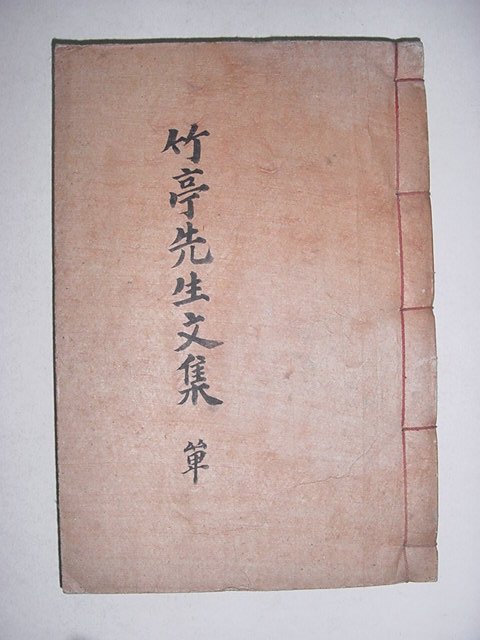 竹亭先生文集 單